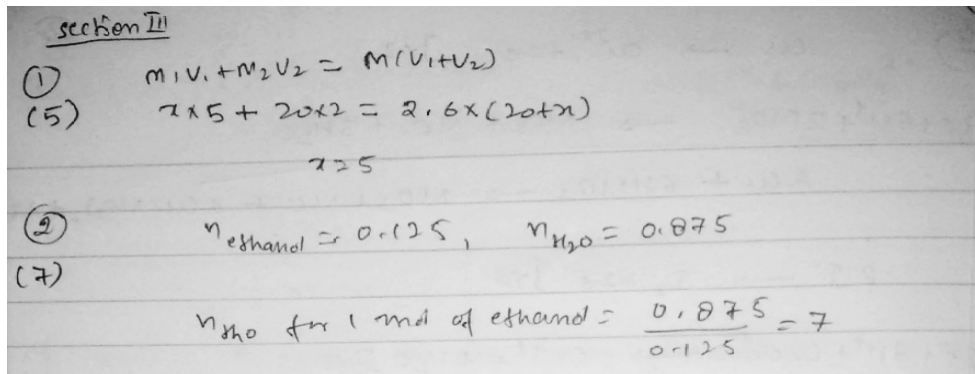 section III
① M₁V₁ + M₂V₂ = M(V₁+V₂)
(5) x × 5 + 20×2 = 2.6×(20+x)
x=5
② n ethanol = 0.125, n H₂O = 0.875
(7)
n H₂O for 1 mol of ethanol = 0.875/0.125 = 7